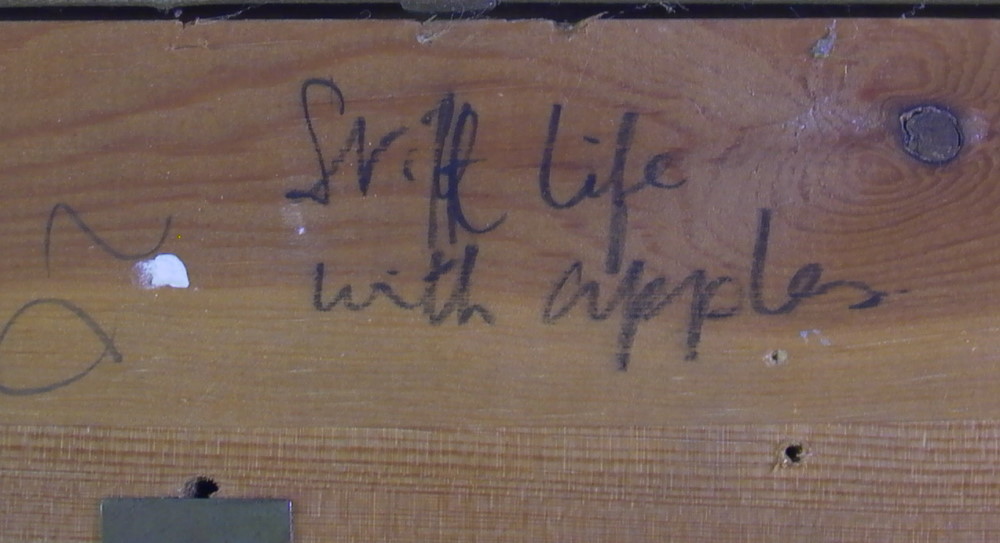 Still life
with apples